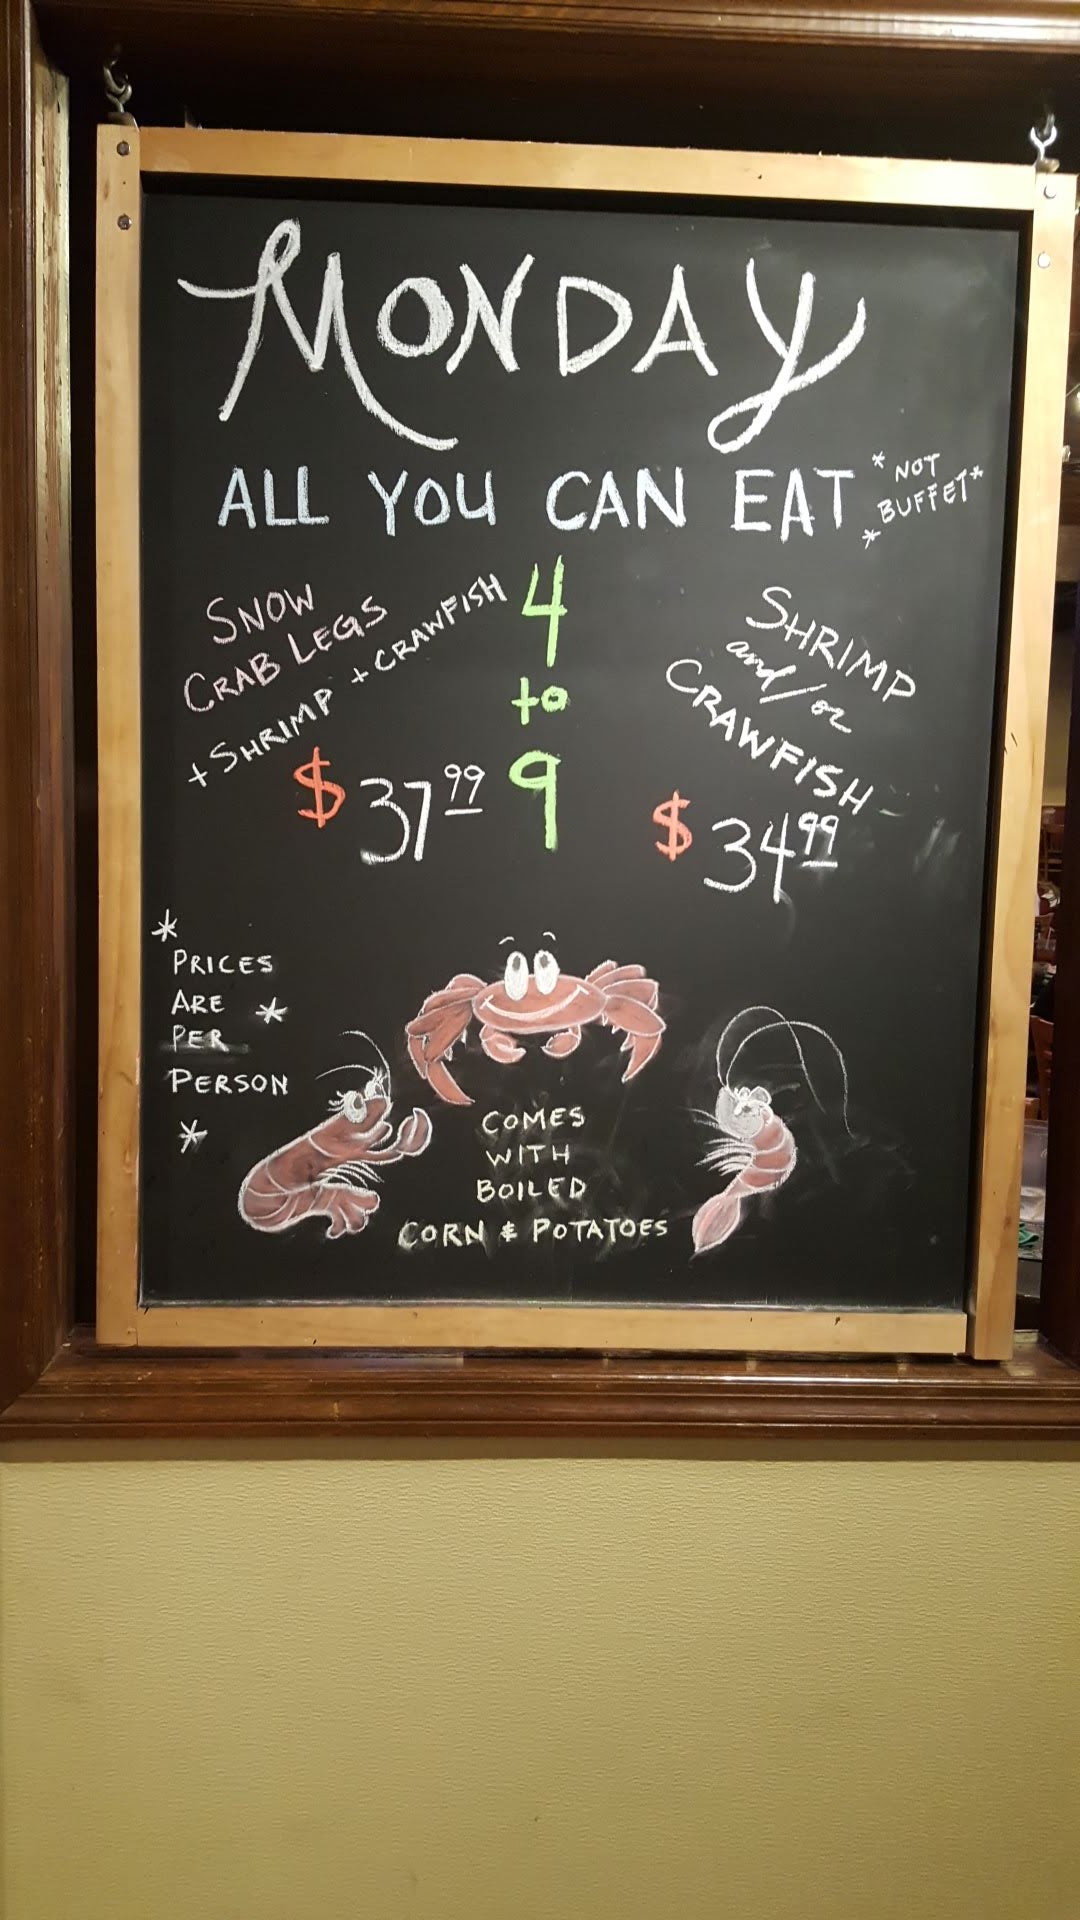 MONDAY
ALL YOU CAN EAT
* NOT
* BUFFET *
SNOW
CRAB LEGS
+ SHRIMP + CRAWFISH
$ 37 99
4
to
9
SHRIMP
and/or
CRAWFISH
$ 34 99
*
PRICES
ARE *
PER
PERSON
*
COMES
WITH
BOILED
CORN & POTATOES